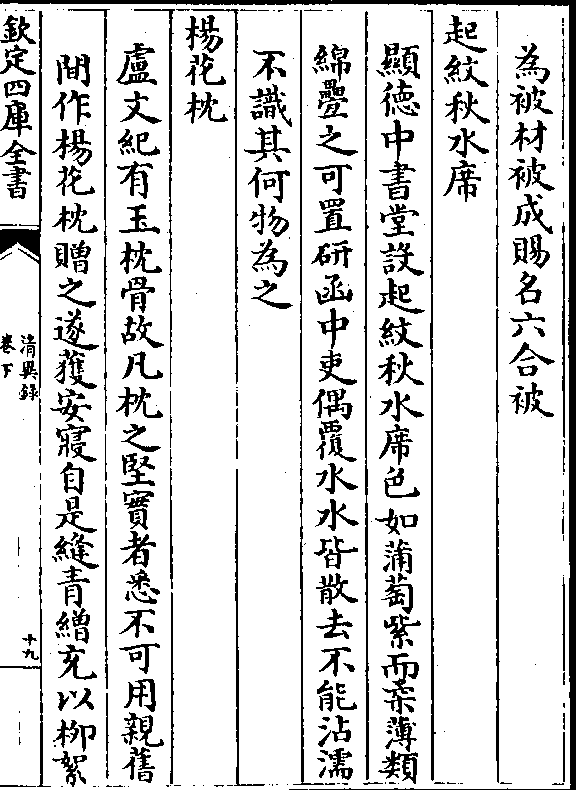 為被材被成賜名六合被
起紋秋水席
顯徳中書堂設起紋秋水席色如蒲萄紫而柔薄類
綿疊之可置研函中吏偶覆水水皆散去不能沾濡
不識其何物為之
楊花枕
盧文紀有玉枕骨故凡枕之堅實者悉不可用親舊
間作楊花枕贈之遂獲安寢自是縫青繒充以柳絮
欽定四庫全書
清異録
卷下
十九